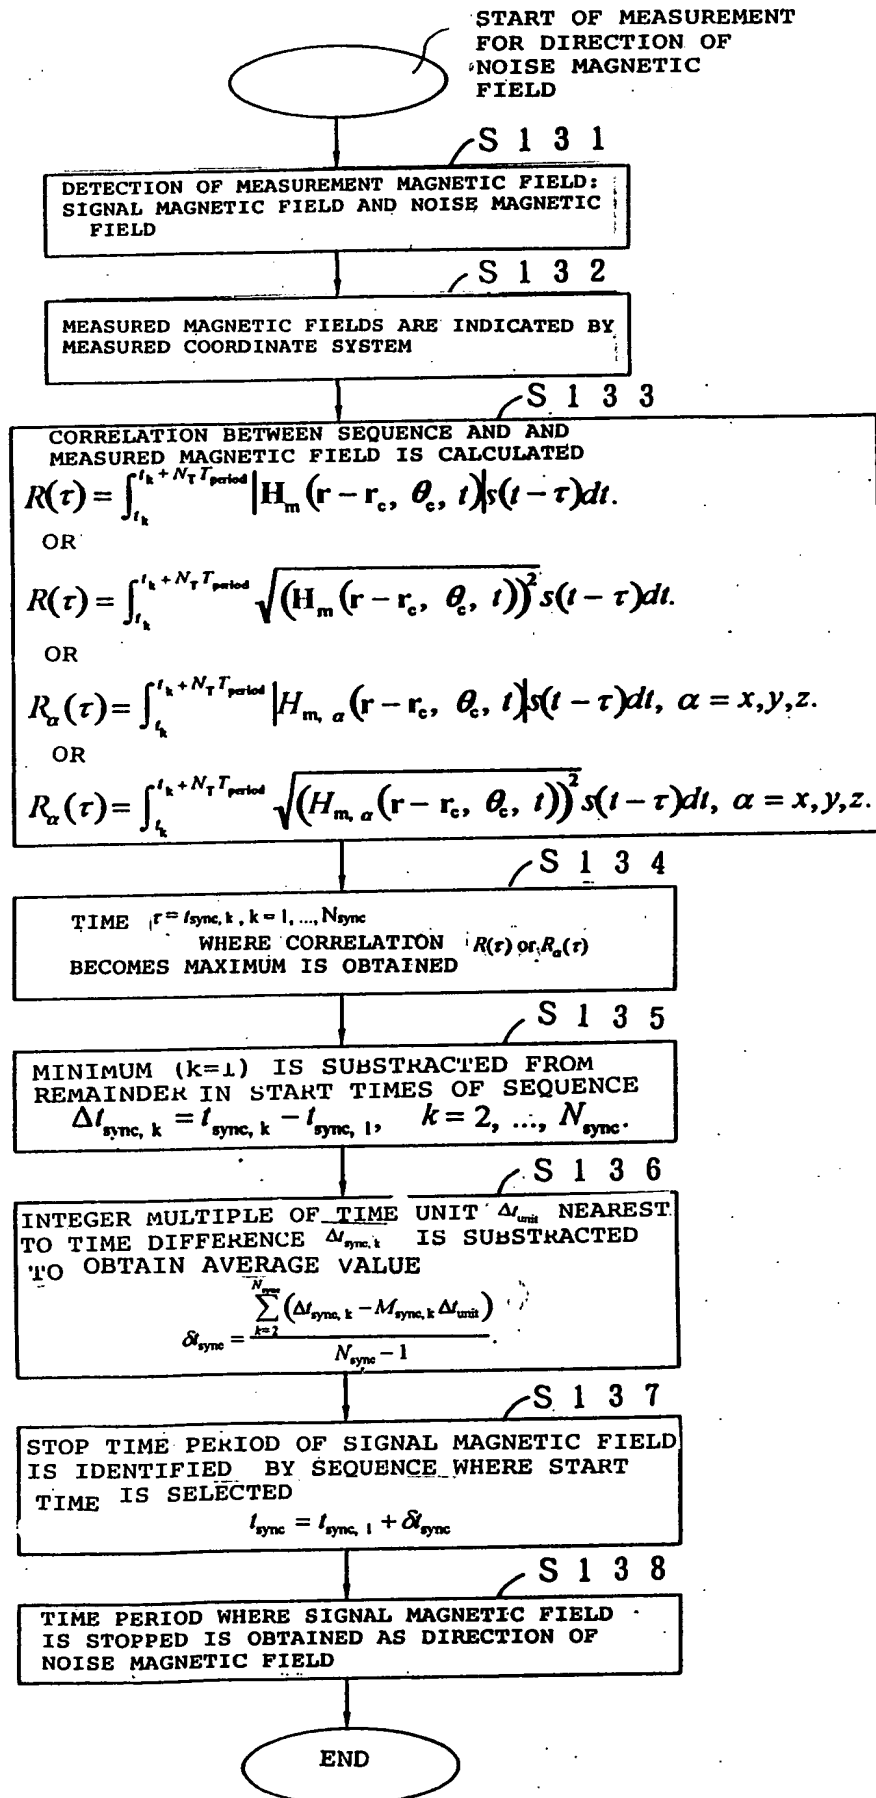 START OF MEASUREMENT
FOR DIRECTION OF
NOISE MAGNETIC
FIELD
S 1 3 1
DETECTION OF MEASUREMENT MAGNETIC FIELD:
SIGNAL MAGNETIC FIELD AND NOISE MAGNETIC
FIELD
S 1 3 2
MEASURED MAGNETIC FIELDS ARE INDICATED BY
MEASURED COORDINATE SYSTEM
S 1 3 3
CORRELATION BETWEEN SEQUENCE AND AND
MEASURED MAGNETIC FIELD IS CALCULATED
R(τ) = ∫_{t_k}^{t_k + N_T T_period} |H_m (r − r_c, θ_c, t)| s(t − τ)dt.
OR
R(τ) = ∫_{t_k}^{t_k + N_T T_period} √(H_m (r − r_c, θ_c, t))² s(t − τ)dt.
OR
R_α(τ) = ∫_{t_k}^{t_k + N_T T_period} |H_{m, α} (r − r_c, θ_c, t)| s(t − τ)dt, α = x,y,z.
OR
R_α(τ) = ∫_{t_k}^{t_k + N_T T_period} √(H_{m, α} (r − r_c, θ_c, t))² s(t − τ)dt, α = x,y,z.
S 1 3 4
TIME τ = t_{sync, k}, k = 1, ..., N_sync
WHERE CORRELATION R(τ) or R_α(τ)
BECOMES MAXIMUM IS OBTAINED
S 1 3 5
MINIMUM (k=1) IS SUBSTRACTED FROM
REMAINDER IN START TIMES OF SEQUENCE
Δt_{sync, k} = t_{sync, k} − t_{sync, 1}, k = 2, ..., N_sync.
S 1 3 6
INTEGER MULTIPLE OF TIME UNIT Δt_unit NEAREST
TO TIME DIFFERENCE Δt_{sync, k} IS SUBSTRACTED
TO OBTAIN AVERAGE VALUE
δt_sync = ∑_{k=2}^{N_sync} (Δt_{sync, k} − M_{sync, k} Δt_unit) / (N_sync − 1).
S 1 3 7
STOP TIME PERIOD OF SIGNAL MAGNETIC FIELD
IS IDENTIFIED BY SEQUENCE WHERE START
TIME IS SELECTED
t_sync = t_{sync, 1} + δt_sync
S 1 3 8
TIME PERIOD WHERE SIGNAL MAGNETIC FIELD
IS STOPPED IS OBTAINED AS DIRECTION OF
NOISE MAGNETIC FIELD
END